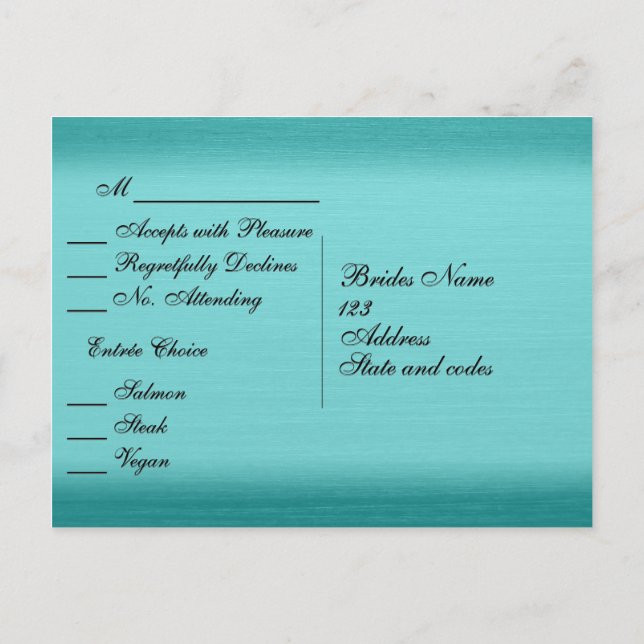 M
Accepts with Pleasure
Regretfully Declines
No. Attending
Entrée Choice
Salmon
Steak
Vegan
Brides Name
123
Address
State and codes